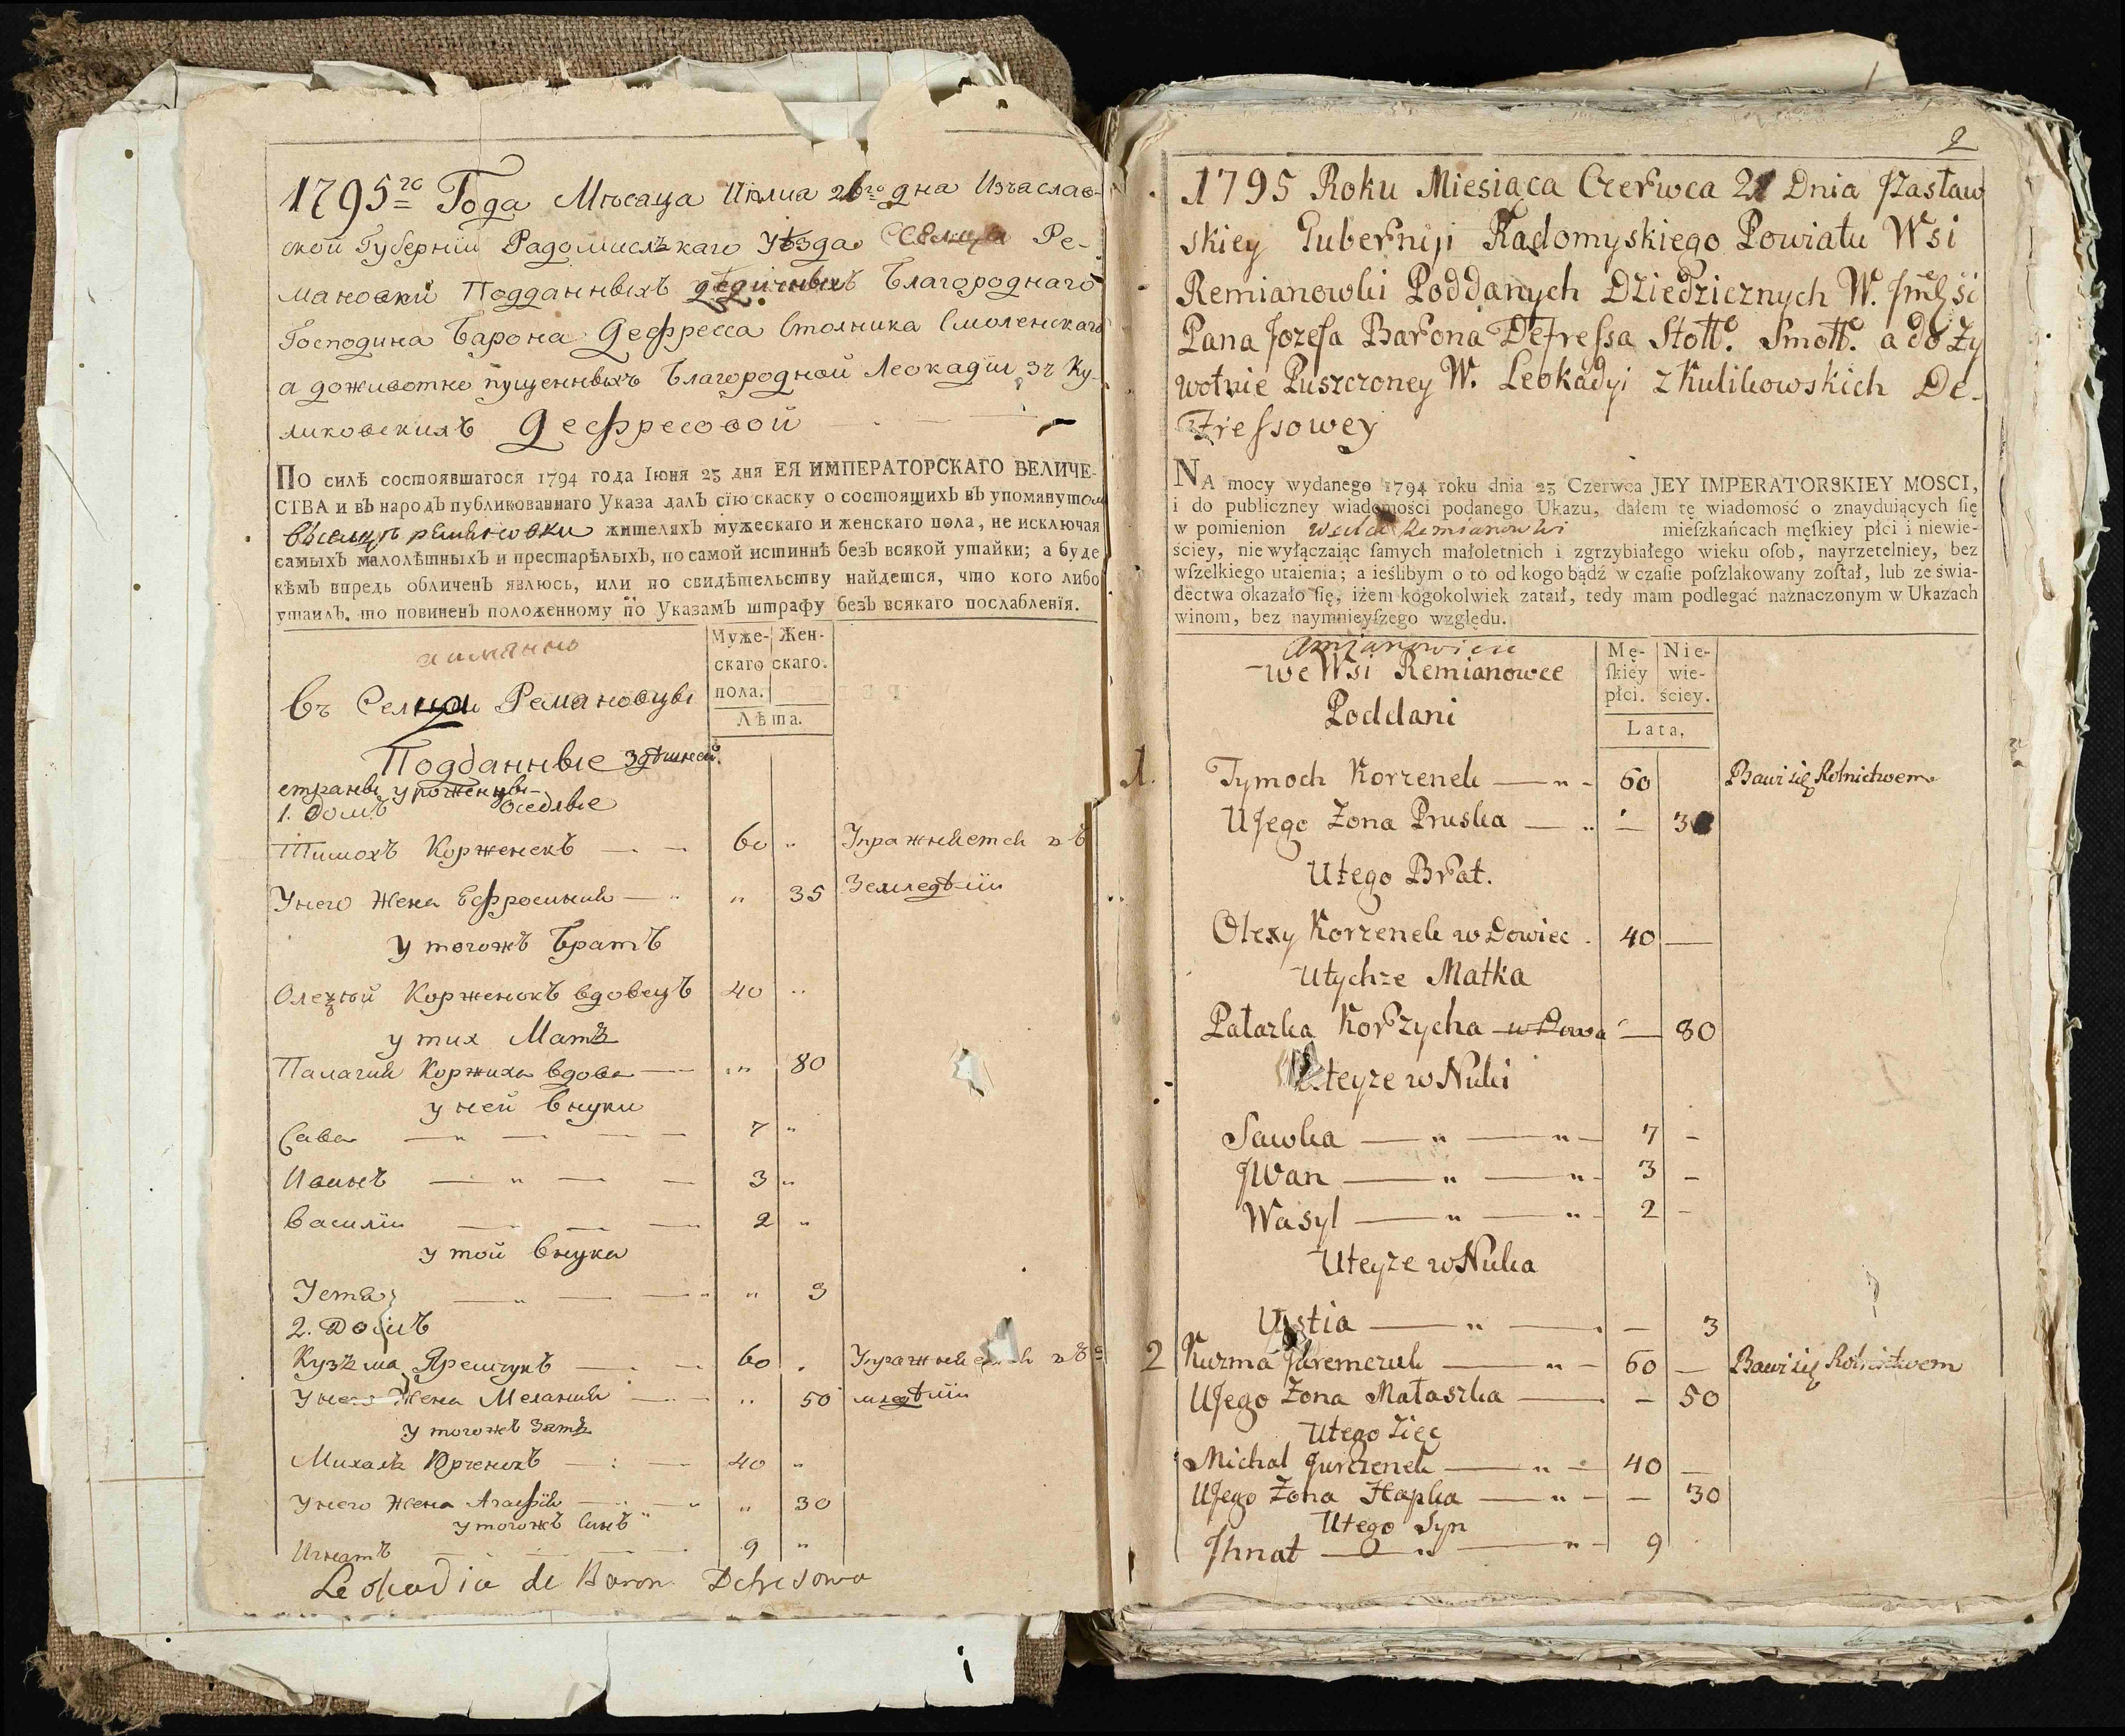 1795го Года Мѣсаца Июлиа 26го дна Изаслав-
ской Губернїи Радомислъкаго Уѣзда Ре-
мановки Подданныхъ дѣдичныхъ Благороднаго
Господина Барона Дефресса Столника Смоленскаго
а доживотно пущенныхъ Благородной Леокадїи зъ Ку-
ликовскихъ Дефресовой
ПО силѣ состоявшагося 1794 года Іюня 23 дня ЕЯ ИМПЕРАТОРСКАГО ВЕЛИЧЕ-
СТВА и въ народъ публикованнаго Указа далъ сїю скаску о состоящихъ въ упомянутом
жителяхъ мужескаго и женскаго пола, не исключая
самыхъ малолѣтныхъ и престарѣлыхъ, по самой истиннѣ безъ всякой утайки; а буде
кѣмъ впредь обличенъ явлюсь, или по свидѣтельству найдется, что кого либо
утаилъ, то повиненъ положенному по Указамъ штрафу безъ всякаго послабленїя.
Муже- Жен-
скаго скаго.
пола.
Лѣта.
а имянно
въ Ремановцы
Подданные здѣшней
страны уроженцы
1. Домъ оседлые
Тимохъ Корженекъ 60 Упражняется въ
Унего Жена Ефросиния 35 Земледѣлїи
у тогожъ Братъ
Олексѣй Корженокъ вдовецъ 40
у тих Матъ
Палагия Коржиха вдова 80
у ней внуки
Сава 7
Иванъ 3
Василїи 2
у той внука
Устя 3
2. Домъ
Кузъма Яремчукъ 60 Упражняется въ з
Унего Жена Мелания 50 мледѣлїи
у тогожъ Зятъ
Михалъ Юрченокъ 40
Унего Жена Агафїя 30
у тогожъ Синъ
Игнатъ 9
Leokadia de Baron Defresowa
2
1795 Roku Miesiąca Czerwca 21 Dnia Jzasław
skiey Gubernji Radomyskiego Powiatu Wsi
Remianowki Poddanych Dziedzicznych W. Jmći
Pana Jozefa Barona Defreſsa Stolł. Smolł. a do ży
wotnie Puszczoney W. Leokadyi z Kulikowskich De-
freſsowey
NA mocy wydanego 1794 roku dnia 23 Czerwca JEY IMPERATORSKIEY MOSCI,
i do publiczney wiadomości podanego Ukazu, dałem tę wiadomość o znayduiących ſię
w pomienion Wsi Remianowki mieſzkańcach męſkiey płci i niewie-
ściey, nie wyłączaiąc ſamych małoletnich i zgrzybiałego wieku oſob, nayrzetelniey, bez
wſzelkiego utaienia; a ieślibym o to od kogo bądź w czaſie poſzlakowany zoſtał, lub ze świa-
dectwa okazało ſię, iżem kogokolwiek zataił, tedy mam podlegać naznaczonym w Ukazach
winom, bez naymnieyſzego względu.
Mę- Nie-
ſkiey wie-
płci. ściey.
Lata.
we Wsi Remianowce
Poddani
1. Tymoch Korzenek 60 Bawi się Rolnictwem
UJego Żona Pruska 30
Utego Brat.
Olexy Korzenek wdowiec 40
Utychże Matka
Pałaszka Korzycha wdowa 80
Uteyże wNuki
Sawka 7
JWan 3
Wasyl 2
Uteyże wNuka
Ustia 3
2 Kuzma Jaremczuk 60 Bawi się Rolnictwem
UJego Żona Małaszka 50
Utego Zięć
Michal Jurczenek 40
UJego Żona Hapka 30
Utego Syn
Jhnat 9